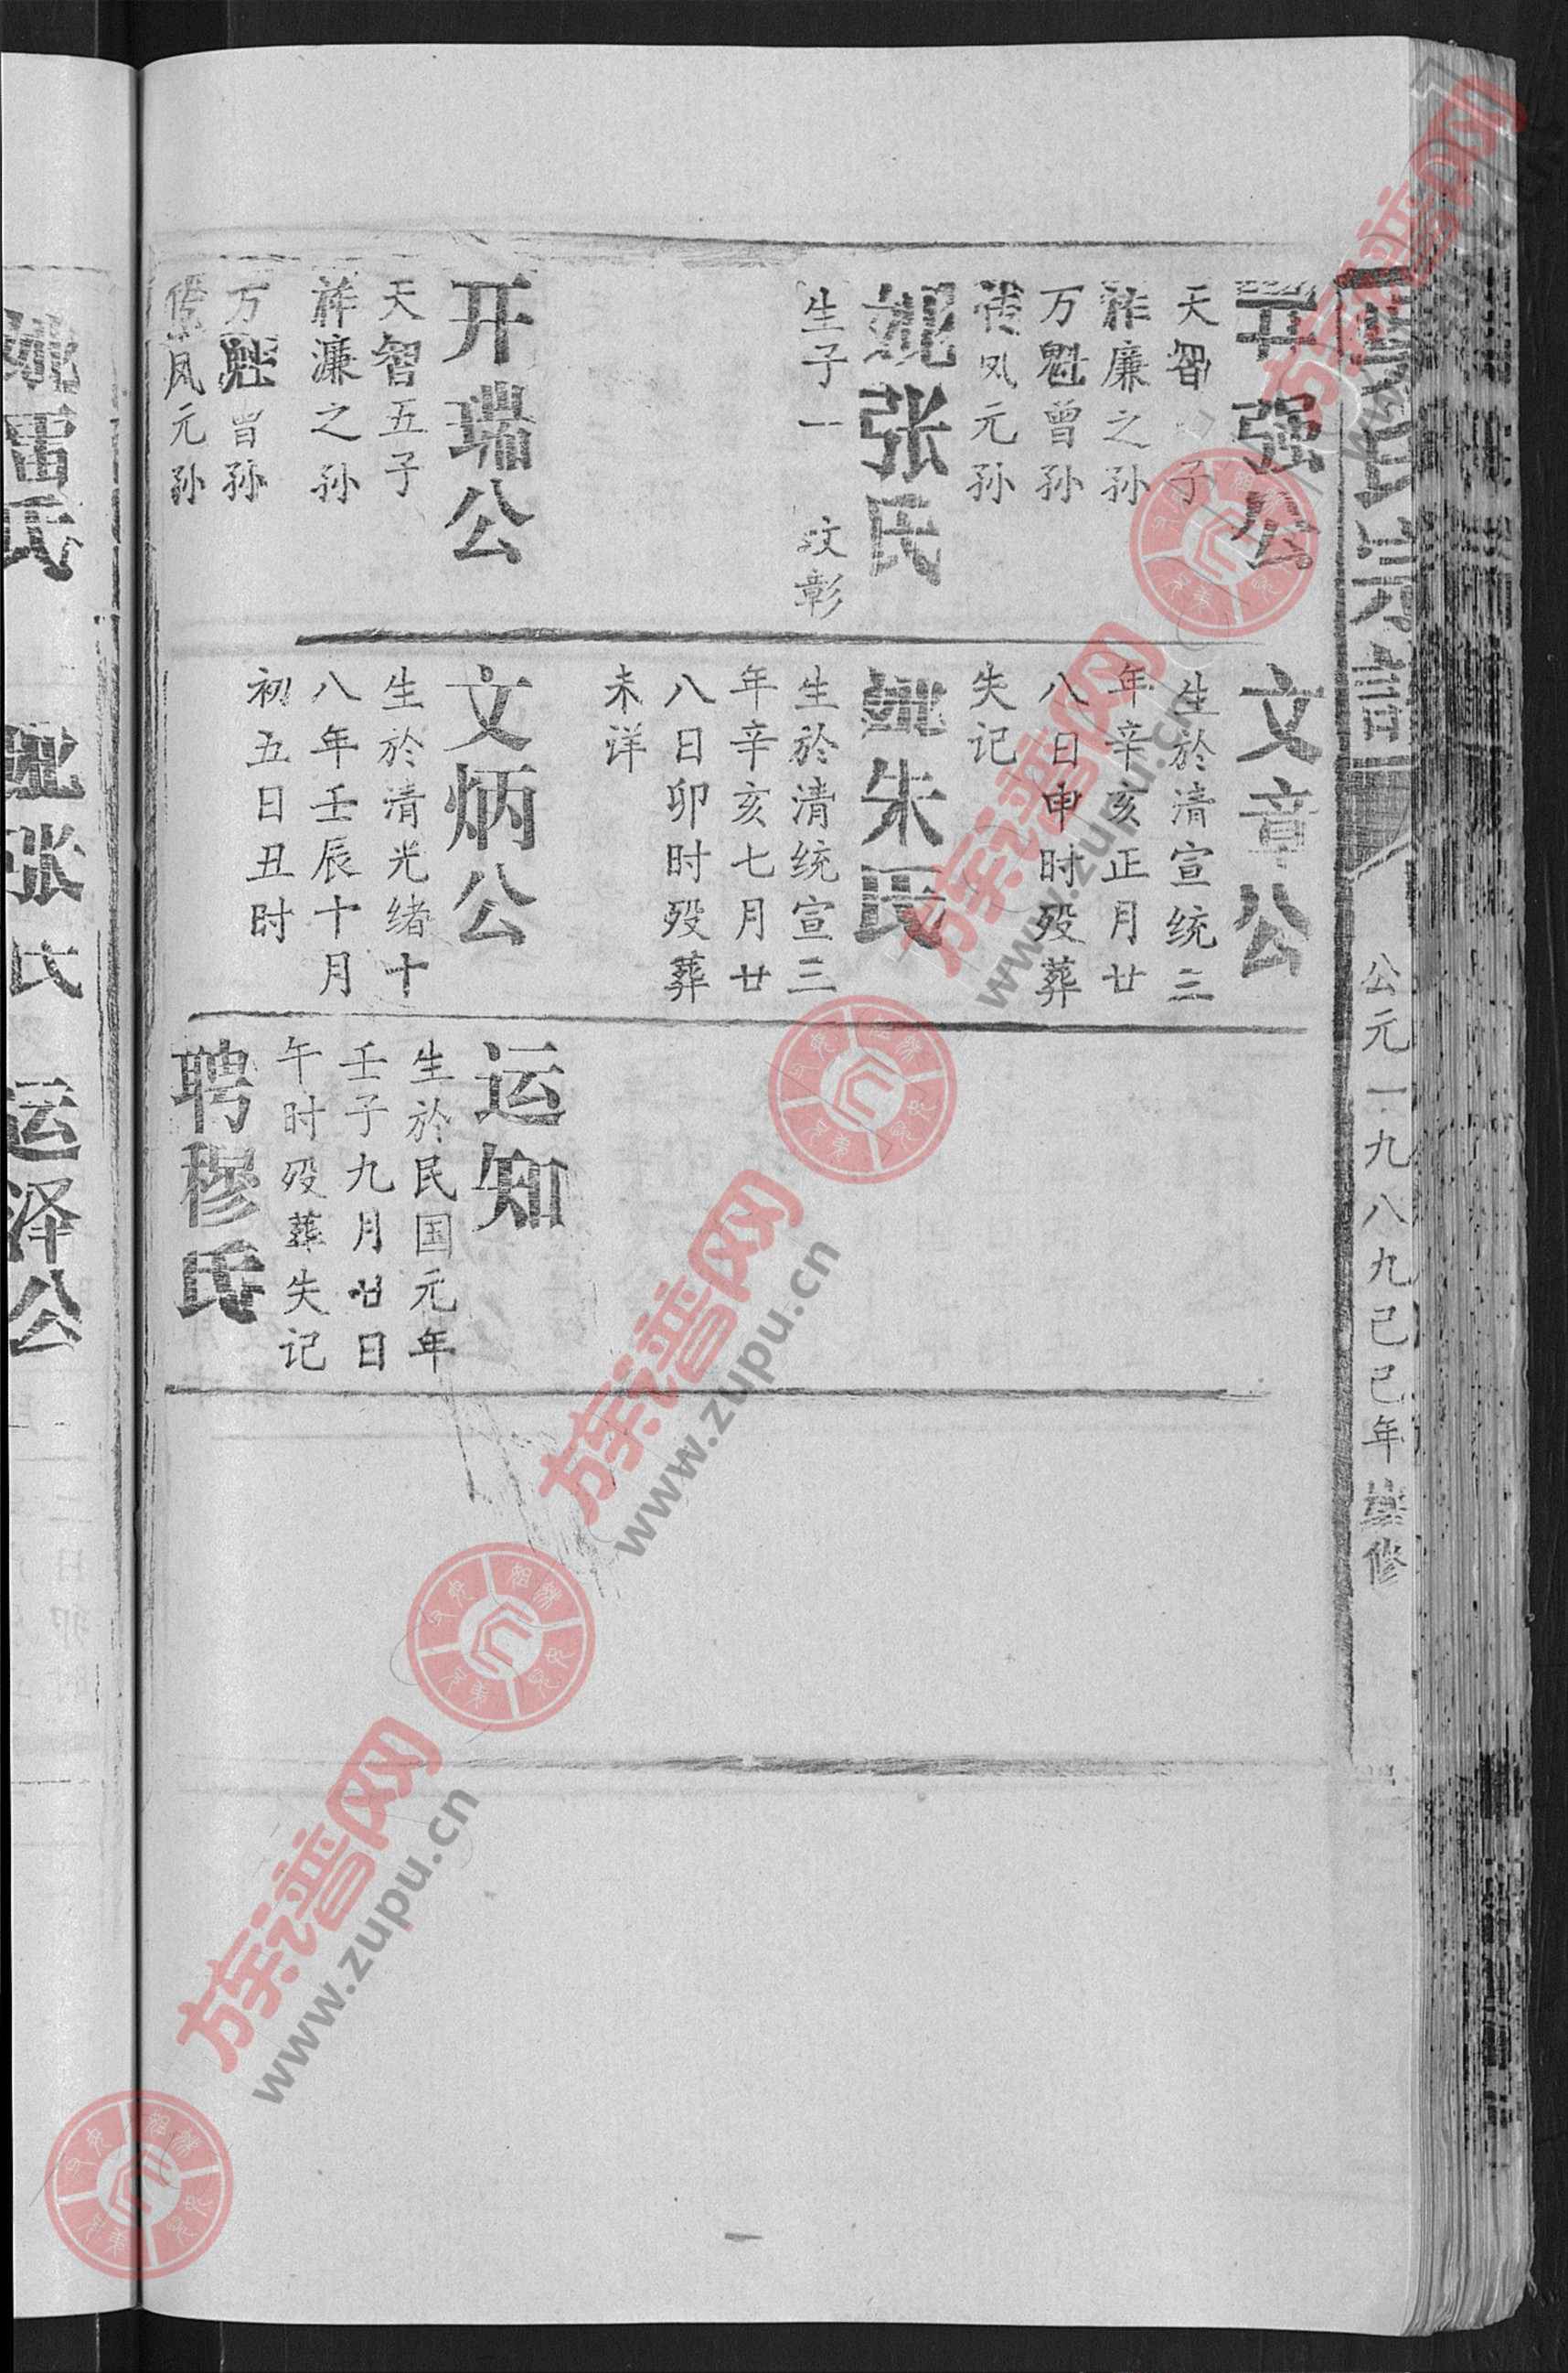 氏宗譜
公元一九八九己巳年修
开强公
天智子
祚廉之孙
万魁曾孙
传凤元孙
妣张氏
生子一 文彰
开瑞公
天智五子
祚濂之孙
万魁曾孙
传凤元孙
文章公
生於清宣统三
年辛亥正月廿
八日申时殁葬
失记
妣朱氏
生於清统宣三
年辛亥七月廿
八日卯时殁葬
未详
文炳公
生於清光绪十
八年壬辰十月
初五日丑时
运知
生於民国元年
壬子九月廿日
午时殁葬失记
聘穆氏
妣雷氏
妣张氏
运泽公
族谱网
www.zupu.cn
族谱网
www.zupu.cn
族谱网
www.zupu.cn
族谱网